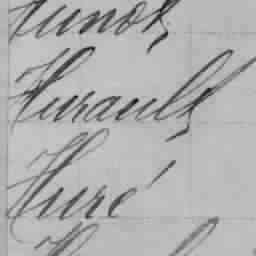 Hunot
Hurault
Huré